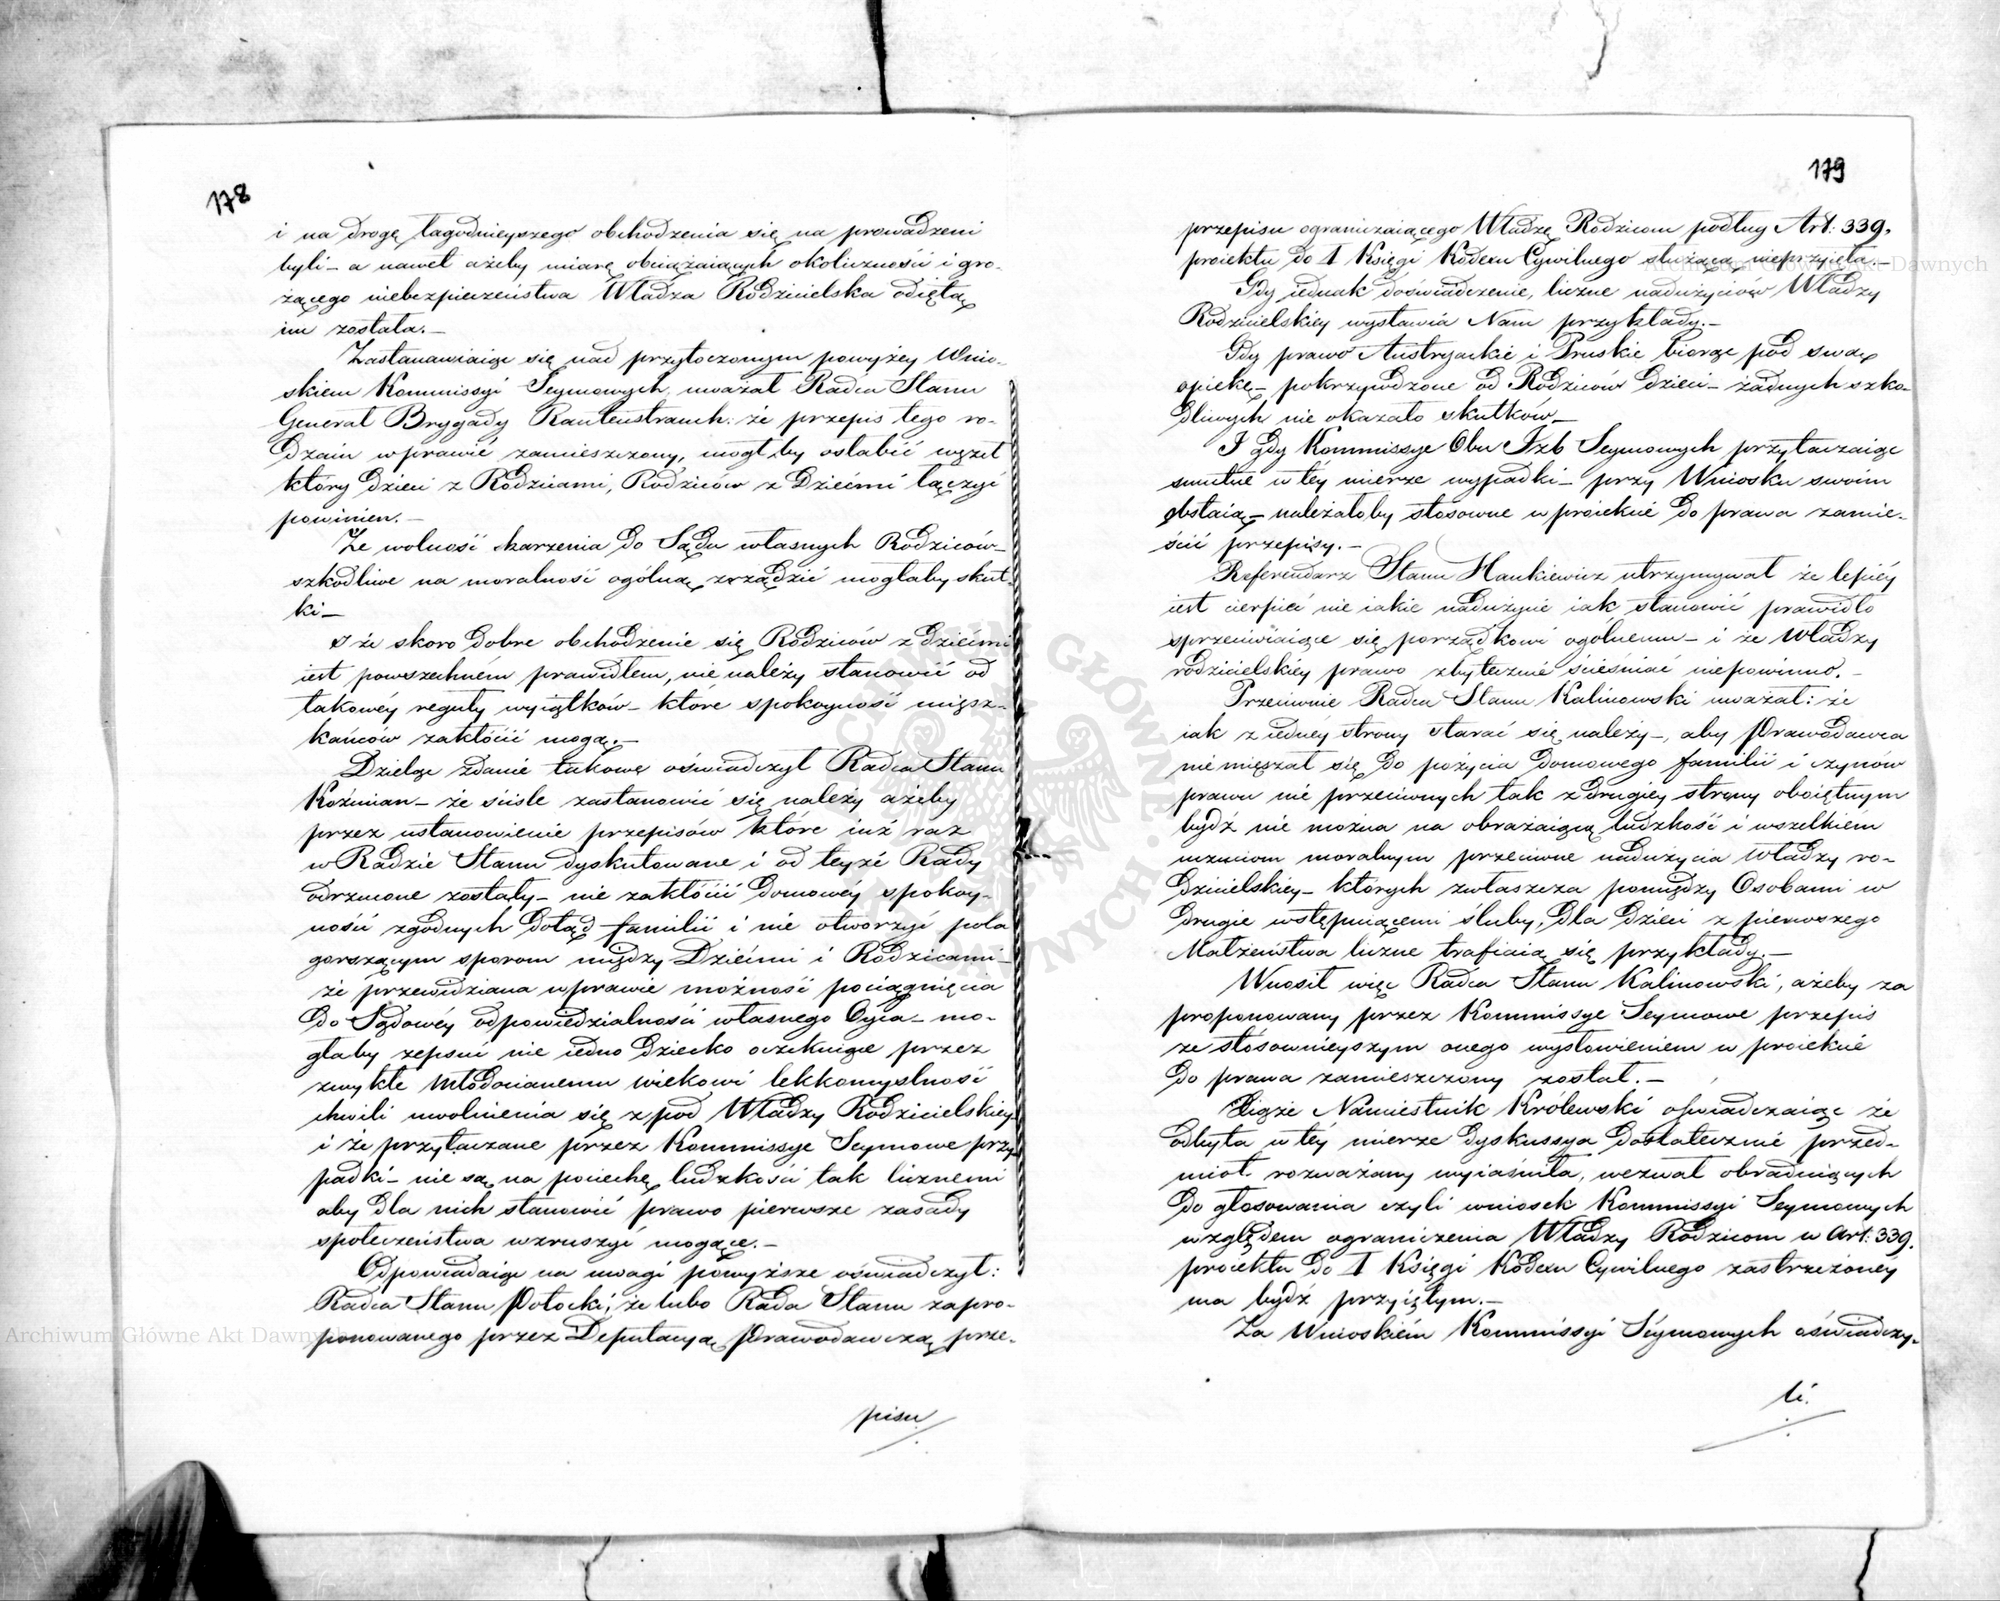 178
i na drogę łagodnieyszego obchodzenia się na prowadzeni
byli – a nawet ażeby miarę obciążaiących okoliczności i gro-
żącego niebezpieczeństwa Władza Rodzicielska odiętą
im została. –
Zastanawiaiąc się nad przytoczonym powyżey Wnio-
skiem Kommissyi Seymowych, uważał Radca Stanu
Generał Brygady Rautenstrauch: że przepis tego ro-
dzaiu w prawie zamieszczony, mógł by osłabić węzeł
który dzieci z Rodzicami, Rodziców z Dziećmi łączyć
powinien. –
Że wolność skarżenia do Sądu własnych Rodziców –
szkodliwe na moralność ogólną zrządzić mogłaby skut-
ki –
I że skoro dobre obchodzenie się Rodziców z dziećmi
iest powszechném prawidłem, nie należy stanowić od
takowéy reguły wyiątków – które spokoyność miesz-
kańców zakłócić mogą. –
Dzieląc zdanie takowe oświadczył Radca Stanu
Koźmian – że ściśle zastanowić się należy ażeby
przez ustanowienie przepisów które iuż raz
w Radzie Stanu dyskutowane i od teyże Rady
odrzucone zostały – nie zakłócić domowéy spokoy-
ności zgodnych dotąd familii i nie otworzyć pola
gorszącym sporom między Dziećmi i Rodzicami –
że przewidziana w prawie możność pociągnięcia
do Sądowéy odpowiedzialności własnego Oyca – mo-
głaby zepsuć nie iedno dziecko oczekuiąc przez
zwykłe młodocianemu wiekowi lekkomyślność
chwili uwolnienia się z pod Władzy Rodzicielskiey
i że przytaczane przez Kommissye Seymowe przy-
padki – nie są na pociechę ludzkości tak licznemi
aby dla nich stanowić prawo pierwsze zasady
społeczeństwa wzruszyć mogące. –
Odpowiadaiąc na uwagi powyższe oświadczył:
Radca Stanu Potocki, że lubo Rada Stanu zapro-
ponowanego przez Deputacyą Prawodawczą prze-
pisu
179
przepisu ograniczaiącego Władzę Rodzicom podług Art: 339.
proiektu do I Księgi Kodexu Cywilnego służącą nieprzyięła. –
Gdy iednak doświadczenie, liczne nadużyciów Władzy
Rodzicielskiey wystawia Nam przykłady. –
Gdy prawo Austryackie i Pruskie biorąc pod swą
opiekę – pokrzywdzone od Rodziców dzieci – żadnych szko-
dliwych nie okazało skutków –
I gdy Kommissye Obu Izb Seymowych przytaczaiąc
smutne w téy mierze wypadki – przy Wniosku swoim
obstaią – należałoby stosowne w proiekcie do prawa zamie-
ścić przepisy. –
Referendarz Stanu Hankiewicz utrzymywał że lepiéy
iest cierpieć nie iakie nadużycie iak stanowić prawidło
sprzeciwiaiące się porządkowi ogólnemu – i że Władzy
rodzicielskiéy prawo zbytecznie ścieśniać niepowinno. –
Przeciwnie Radca Stanu Kalinowski uważał: że
iak z iednéy strony starać się należy –, aby Prawodawca
nie mięszał się do pożycia domowego familii i czynów
prawu nie przeciwnych tak z drugiéy strony oboiętnym
bydź nie można na obrażaiącą ludzkość i wszelkiém
uczuciom moralnym przeciwne nadużycia Władzy ro-
dzicielskiey – których zwłaszcza pomiędzy Osobami w
drugie wstępuiącemi śluby, dla dzieci z pierwszego
Małżeństwa liczne trafiaią się przykłady. –
Wnosił więc Radca Stanu Kalinowski, ażeby za
proponowany przez Kommissye Seymowe przepis
ze stósownieyszym onego wysłowieniem w proiekcie
do prawa zamieszczony został. –
Xiąże Namiestnik Królewski oświadczaiąc że
odbyta w téy mierze dyskussya dostatecznie przed-
miot rozważany wyiaśniła, wezwał obraduiących
do głosowania czyli wniosek Kommissyi Seymowych
względem ograniczenia Władzy Rodzicom w Art: 339.
proiektu do I Księgi Kodexu Cywilnego zastrzeżonéy
ma bydź przyiętym. –
Za Wnioskiém Kommissyi Séymowych oświadczy-
li.
Archiwum Główne Akt Dawnych
Archiwum Główne Akt Dawnych